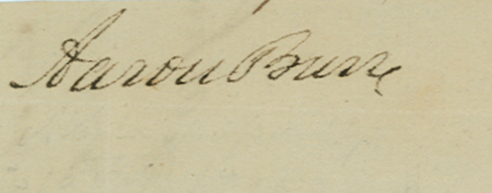 Aaron Burr